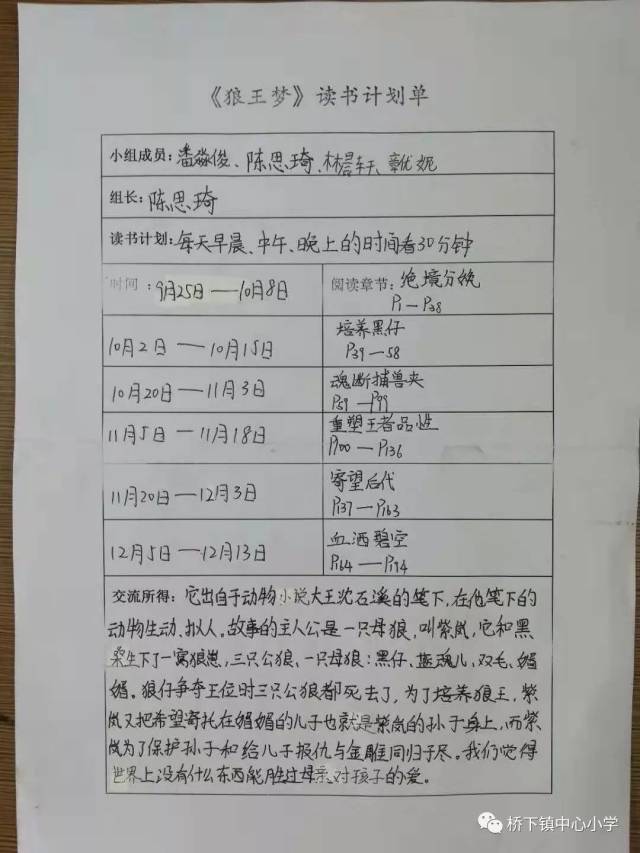 《狼王梦》读书计划单
小组成员：潘淼俊、陈思琦、林晨轩、章优妮
组长：陈思琦
读书计划：每天早晨、中午、晚上的时间看30分钟
时间：9月25日——10月8日
阅读章节：绝境分娩
P1—P38
10月2日——10月15日
培养黑仔
P39—58
10月20日——11月3日
魂断捕兽夹
P59—P99
11月5日——11月18日
重塑王者品性
P100—P136
11月20日——12月3日
寄望后代
P137—P163
12月5日——12月13日
血洒碧空
P164—P194
交流所得：它出自于动物小说大王沈石溪的笔下，在他笔下的
动物生动、拟人。故事的主人公是一只母狼，叫紫岚，它和黑
桑生下了一窝狼崽，三只公狼、一只母狼：黑仔、蓝魂儿，双毛、媚
媚。狼仔争夺王位时三只公狼都死去了，为了培养狼王，紫
岚又把希望寄托在媚媚的儿子也就是紫岚的孙子身上，而紫
岚为了保护孙子和给儿子报仇与金雕同归于尽。我们觉得
世界上没有什么东西能胜过母亲对孩子的爱。
桥下镇中心小学